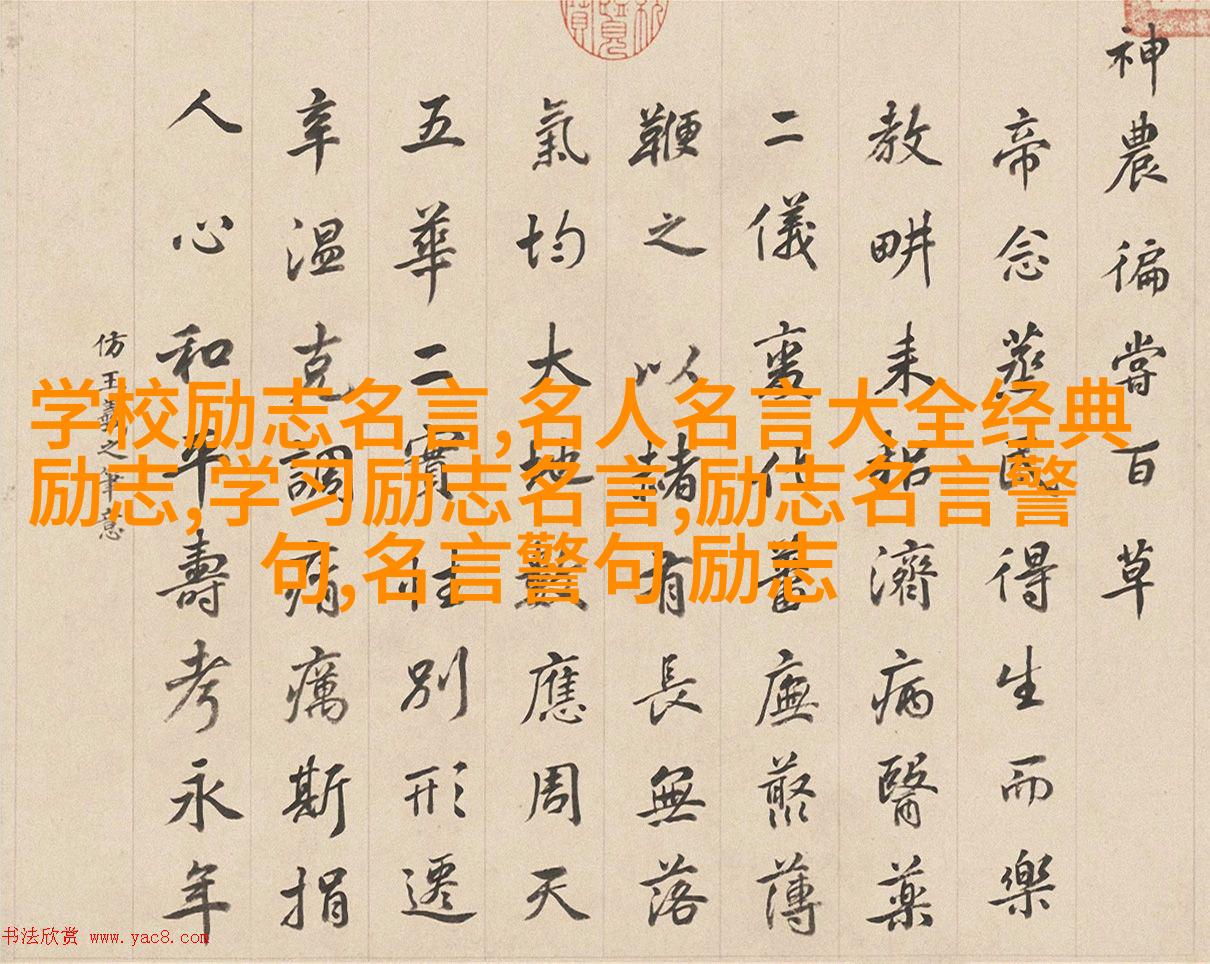 神農徧嘗百草
帝念蒸民得生而樂
教畊耒耜濟病醫藥
二儀奠位蓄廡蒸薄
鞭之以赭有長無落
氣均大地數應周天
五華二實性別形遷
辛温克調病癘斯捐
人心和平壽考永年
仿王羲之筆意
学校励志名言,名人名言大全经典
励志,学习励志名言,励志名言警
句,名言警句,励志
书法欣赏 www.yac8.com